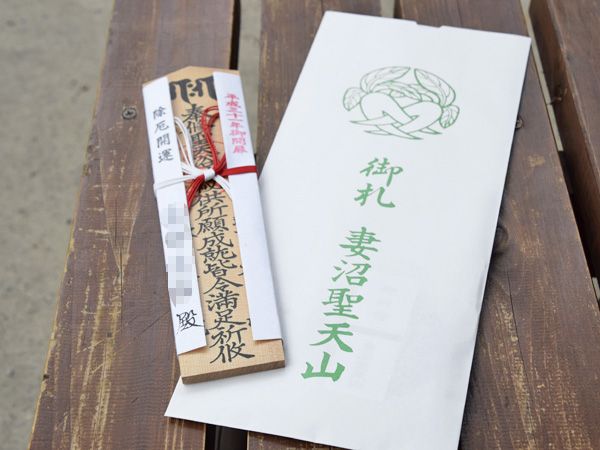 平成三十一年御開扉
奉修聖天浴
供所願成就皆令満足祈攸
除厄開運
殿
御札 妻沼聖天山